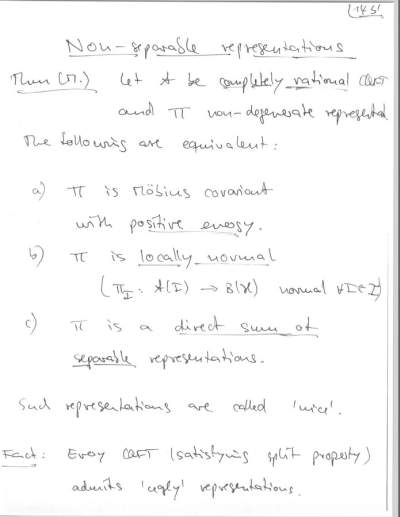 (143)
Non-separable representations
Thm (M.) Let A be completely rational CQFT
and π non-degenerate represent.
The following are equivalent:
a) π is Möbius covariant
with positive energy.
b) π is locally normal
(π_I : A(I) → B(H) normal ∀I∈I)
c) π is a direct sum of
separable representations.
Such representations are called 'nice'.
Fact: Every CQFT (satisfying split property)
admits 'ugly' representations.